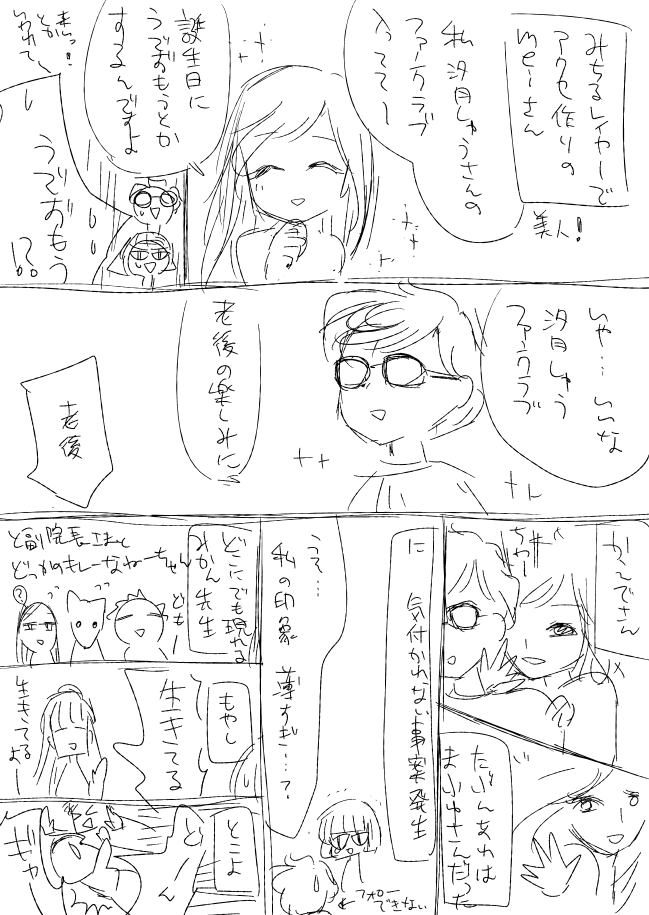 みちるレイヤーで
アクセ作りの
meiさん
美人!
私 汐月しゅうさんの
ファンクラブ
入ってて〜
誕生日に
うでおもうとか
するんですよ
とか
いわれて、
うでおもう
!??
いや…いいな
汐月しゅう
ファンクラブ
老後の楽しみに
老後
かんでさん
ちゅー
たぶんあれは
まふゆさんだった
に 気付かれない事案発生
うそ…
私の印象 薄すぎ…?
フォロー
できない
どこにでも現れる
みかん先生
とも
と副院長
どっかのキレーなねーちゃん
?
もやし
生きてる
生きてるよ
とこよ
ギャー